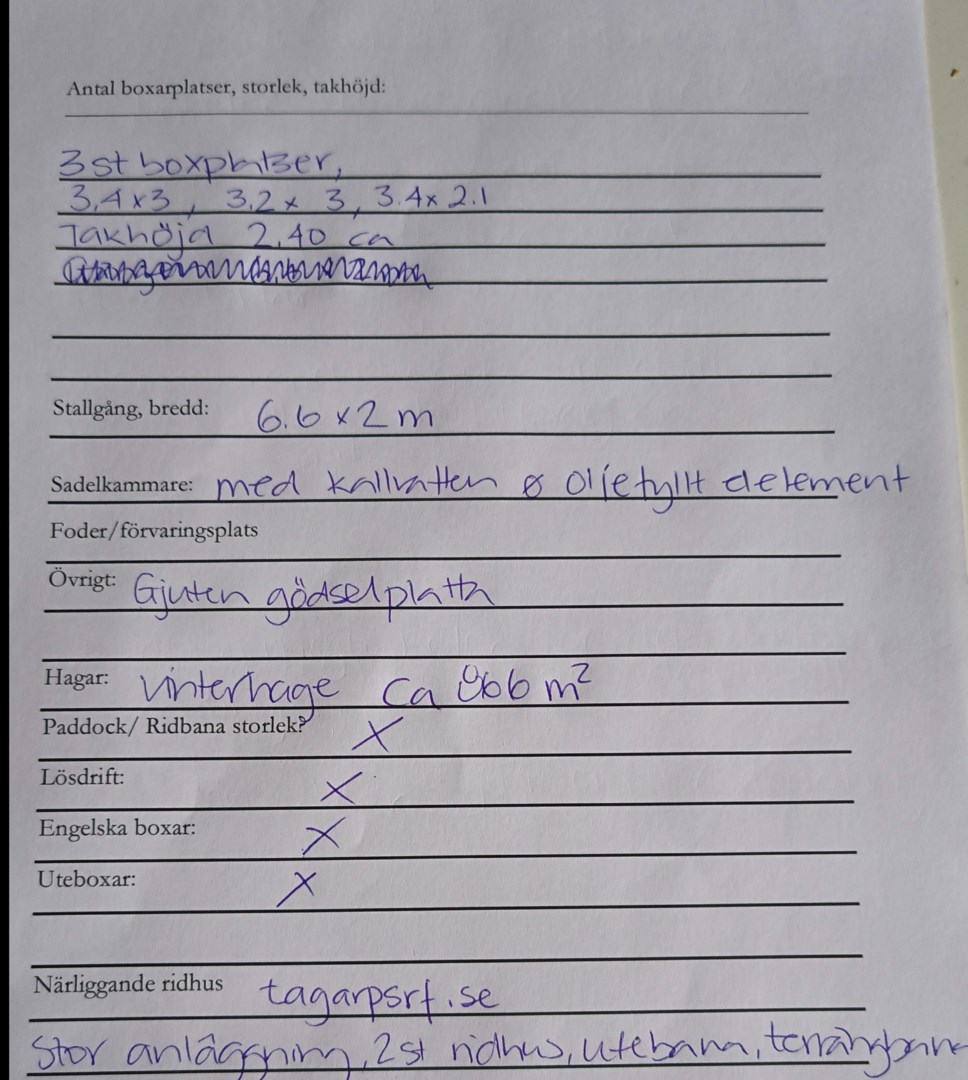 Antal boxarplatser, storlek, takhöjd:
3 st boxplatser,
3,4 x 3 , 3.2 x 3, 3.4 x 2.1
Takhöjd 2,40 ca
Stallgång, bredd: 6.6 x 2 m
Sadelkammare: med kallvatten & oljefyllt delement
Foder/förvaringsplats
Övrigt: Gjuten gödselplatta
Hagar: vinterhage ca m²
Paddock/ Ridbana storlek? X
Lösdrift: X
Engelska boxar: X
Uteboxar: X
Närliggande ridhus tagarpsrf.se
Stor anläggning, 2 st ridhus, utebana, terrängbana